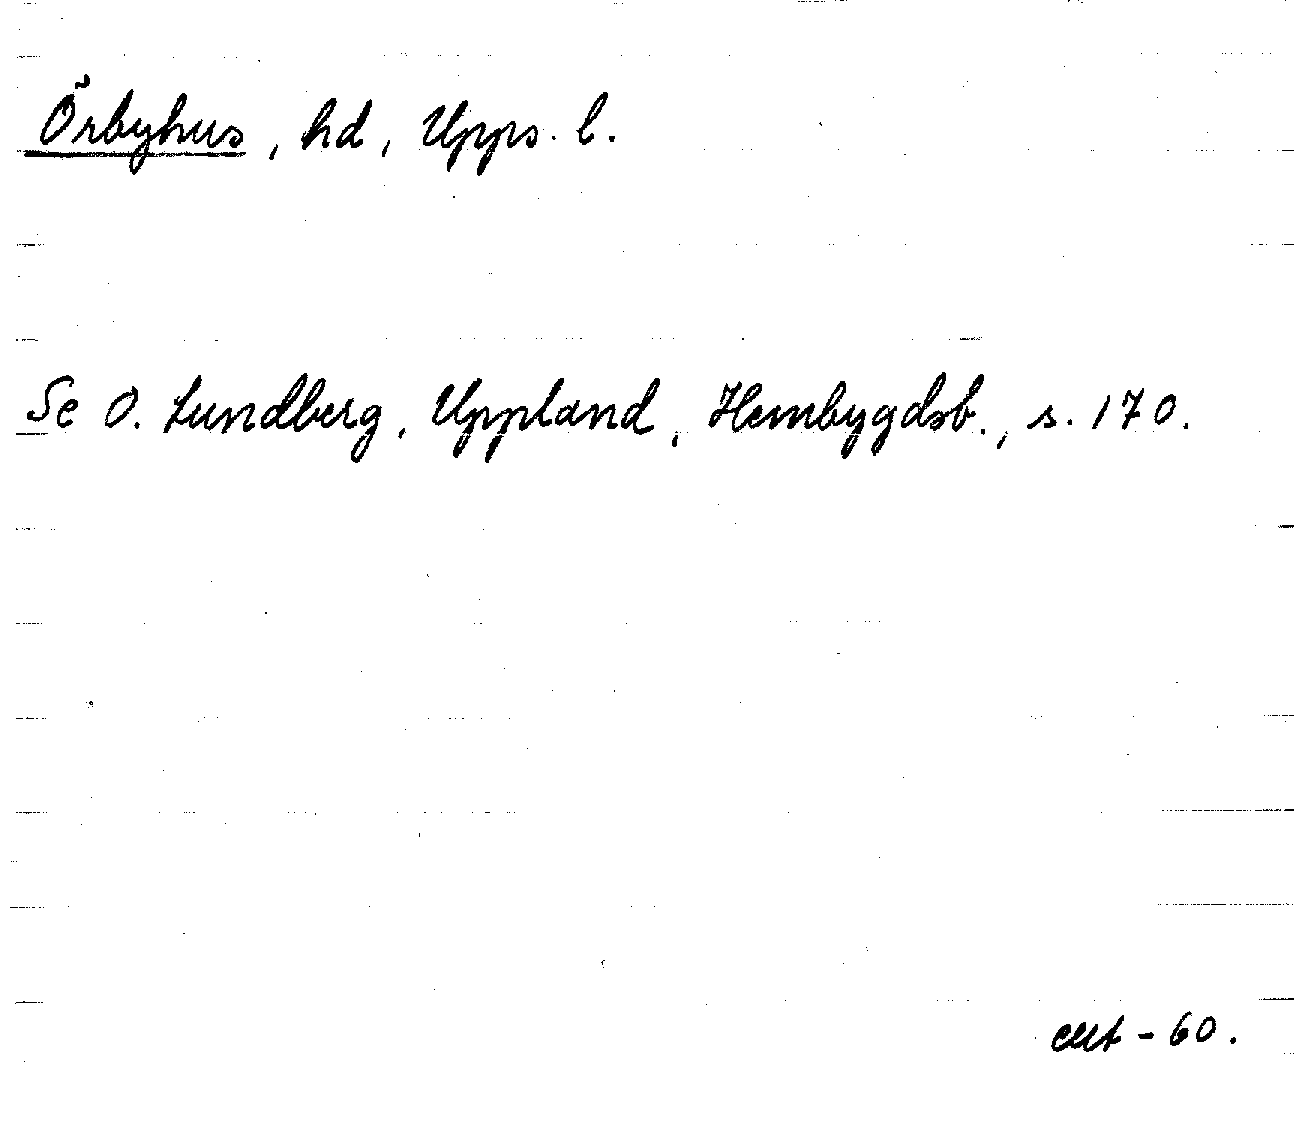 Örbyhus, hd, Upps. l.
Se O. Lundberg, Uppland, Hembygdsb., s. 170.
- 60.